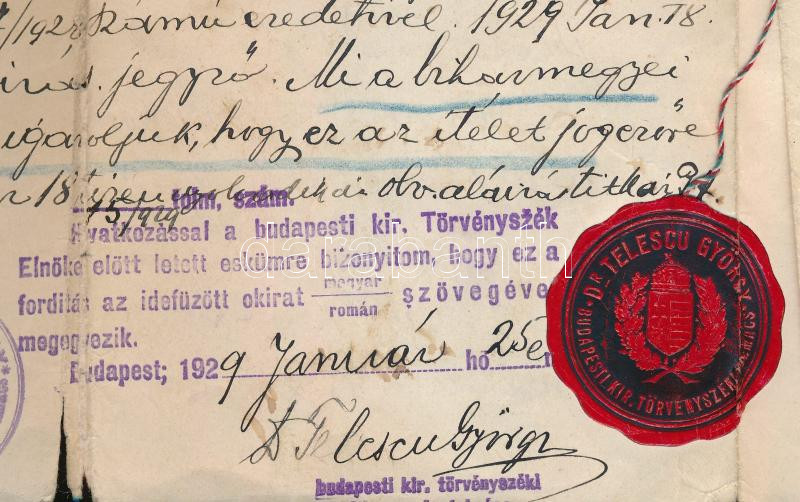 számú eredetivel. 1929 Jan. 18.
jegyző. Mi a biharmegyei
igazoljuk, hogy ez az ítélet jogerőre
18 olv. aláírás titkár
75/929 tolm. szám.
Hivatkozással a budapesti kir. Törvényszék
Elnöke előtt letett eskümre bizonyitom, hogy ez a
forditás az idefüzött okirat magyar szövegével
román
megegyezik.
Budapest; 1929 Január hó 25 én
Dr Telescu György
budapesti kir. törvényszéki
DR TELESCU GYÖRGY
BUDAPESTI KIR. TÖRVÉNYSZÉKI
darabanth